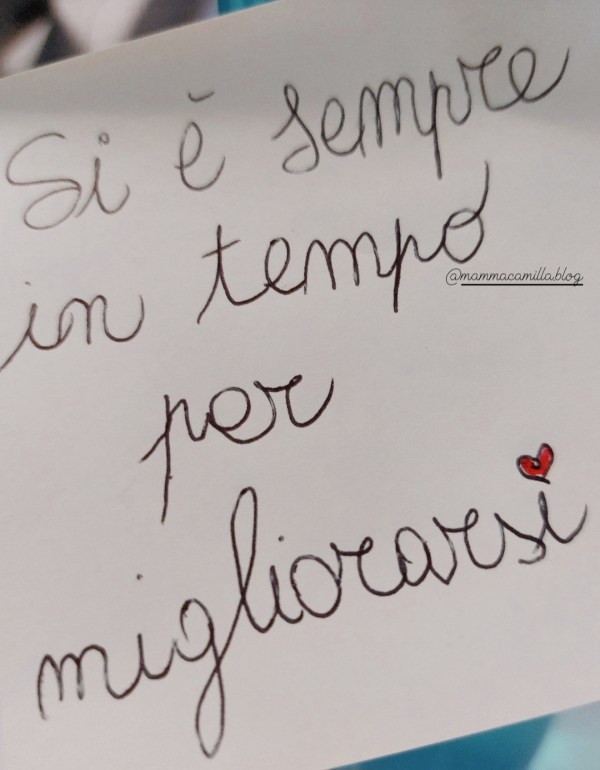 Si è sempre
in tempo
@mammacamilla.blog
per
migliorarsi